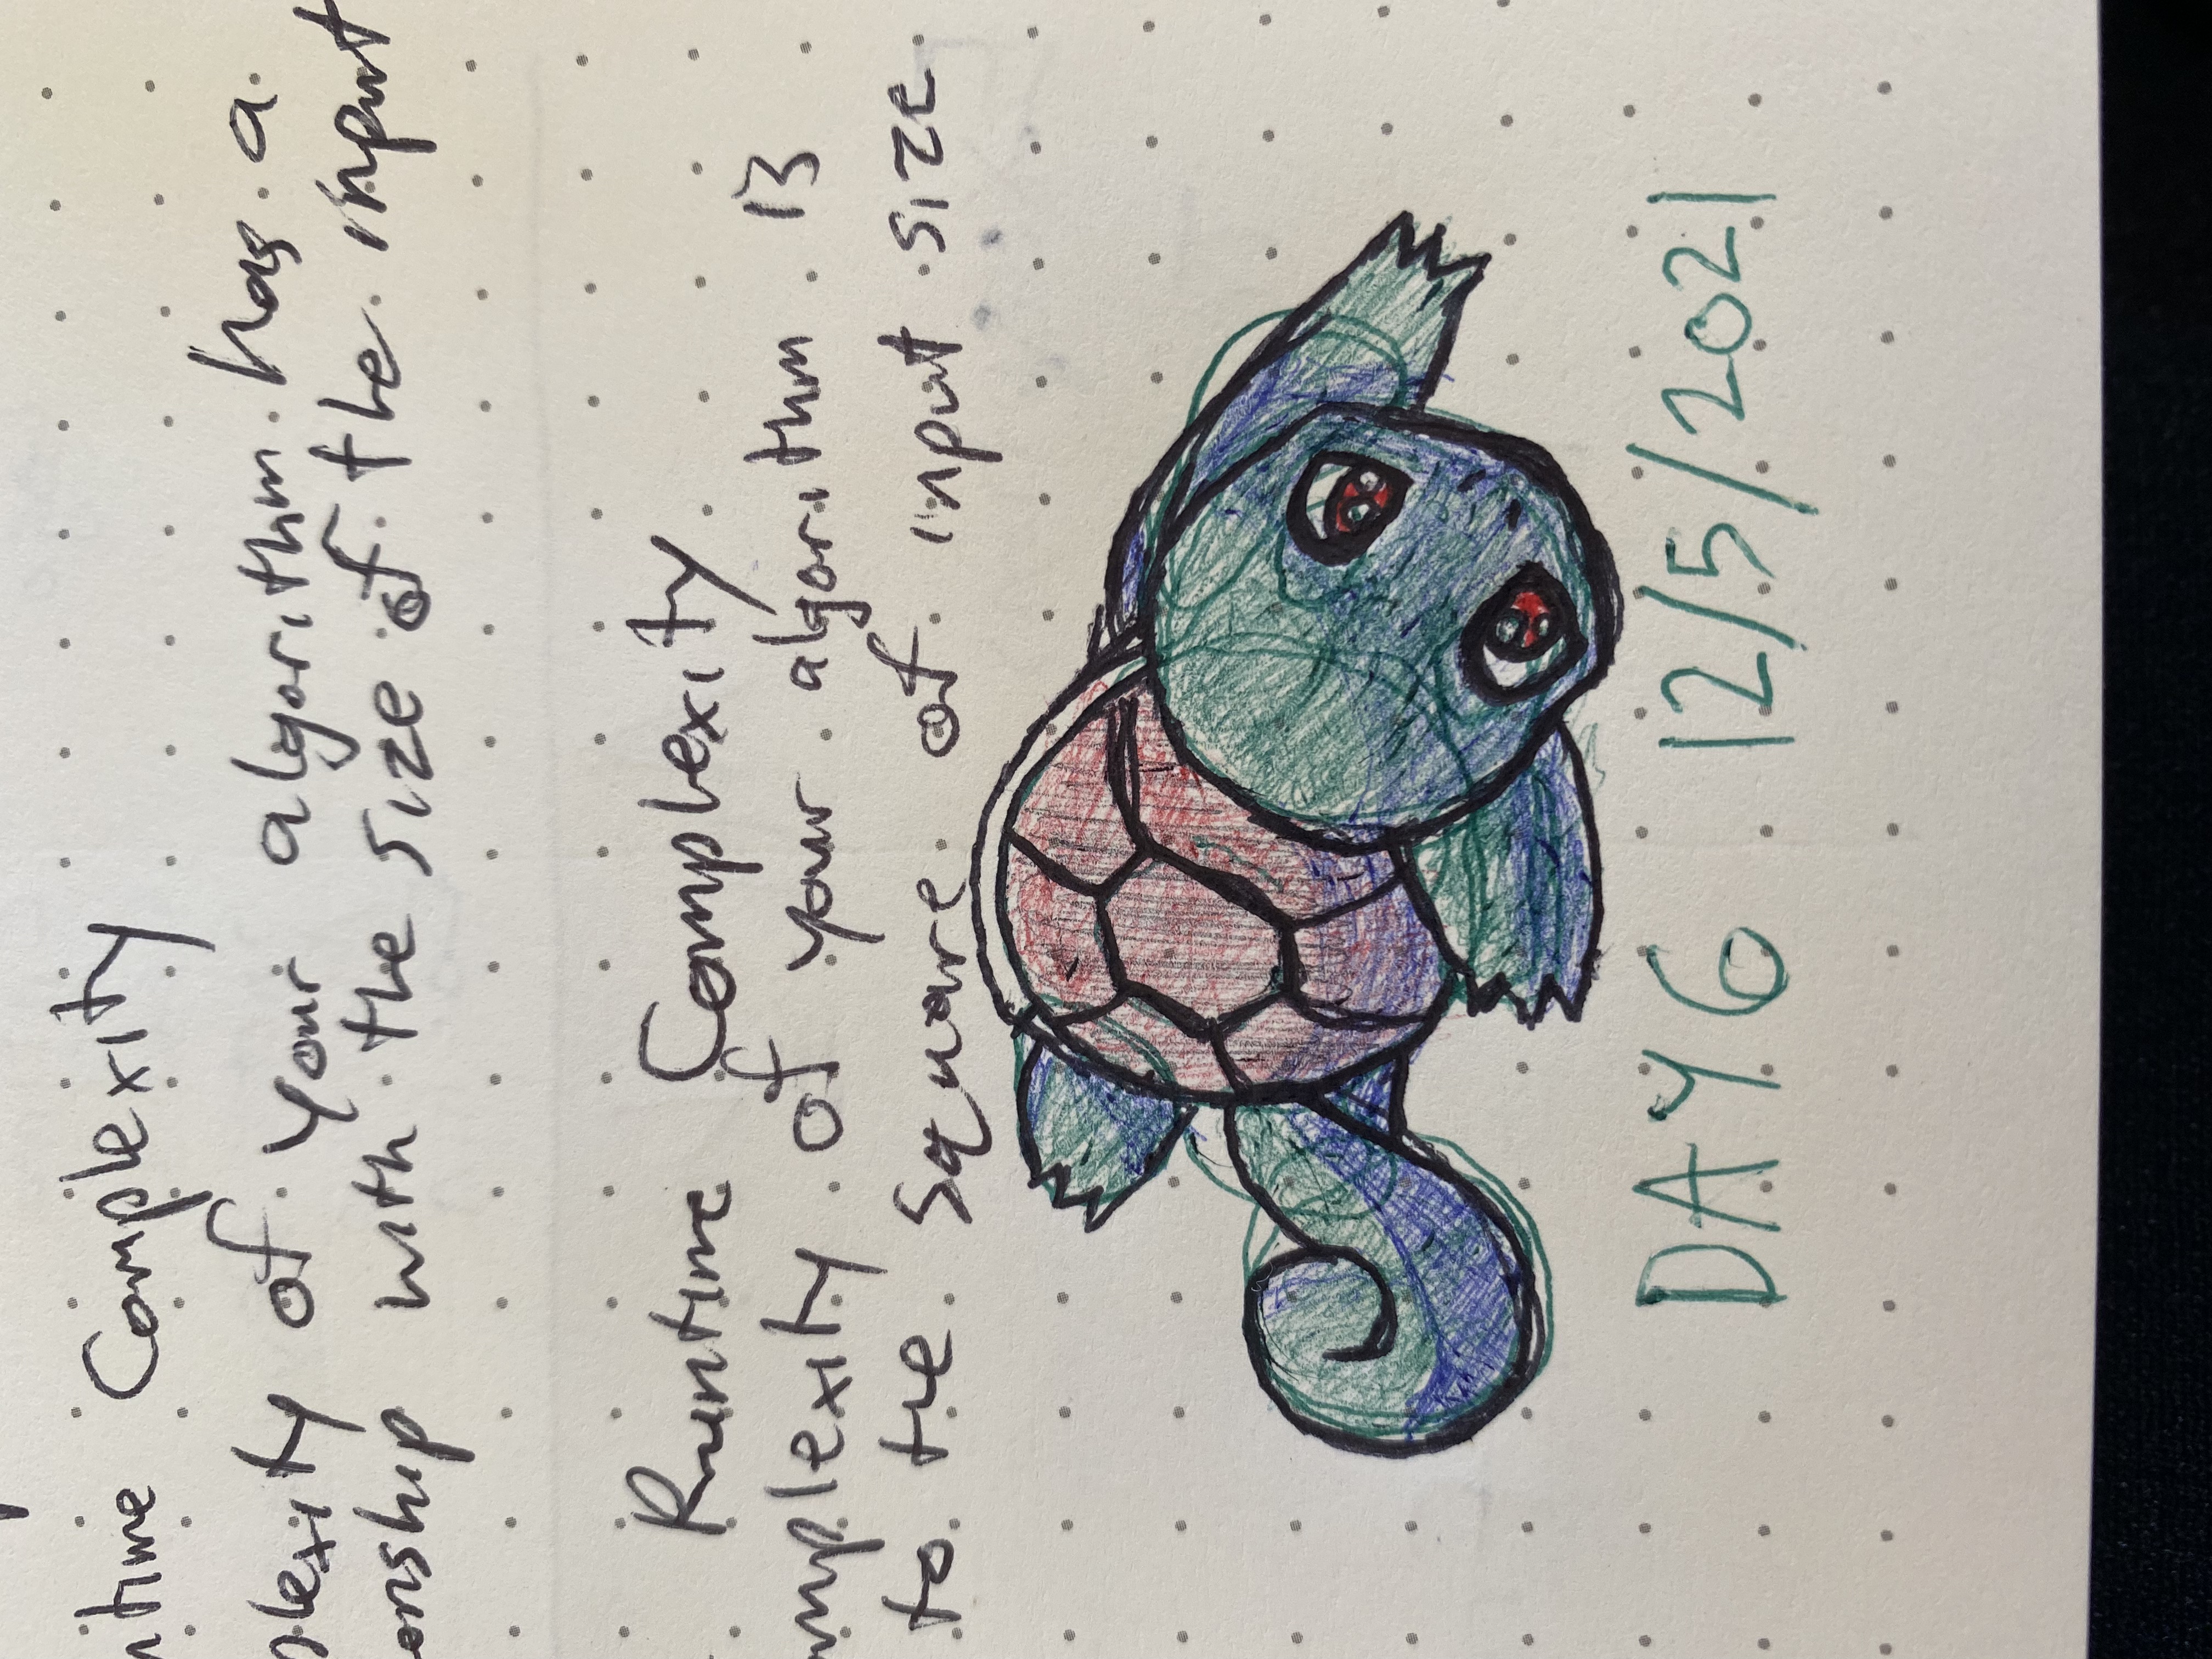 ntime Complexity
plexity of your algorithm has a
onship with the size of the input
Runtime Complexity
omplexity of your algorithm is
to the square of input size
DAY 6 12/5/2021